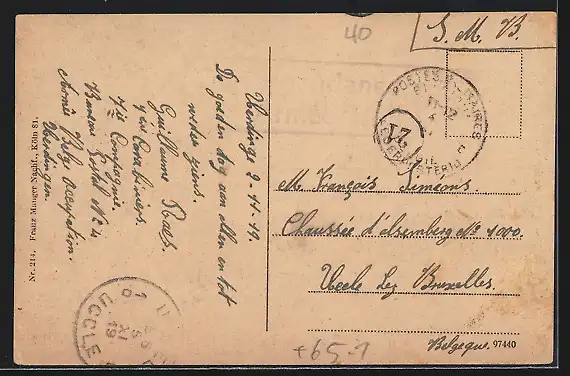 40
S. M. B.
Uerdinge 2-11-19.
De goeden dag aan allen en tot
weder ziens.
Guillaume Roels.
4me Carabiniers.
7ie Compagnie.
Bureau Postal No 4
Armée Belg Occupation.
Uerdingen.
Nr. 214. Franz Manger Nachf., Köln 81.
POSTES MILITAIRES
11-12
17
M. François Simeons.
Chaussée d'Alsemberg No 1000.
Uccle Lez Bruxelles.
Belgique.
97440
UCCLE
XI
19
+65-1